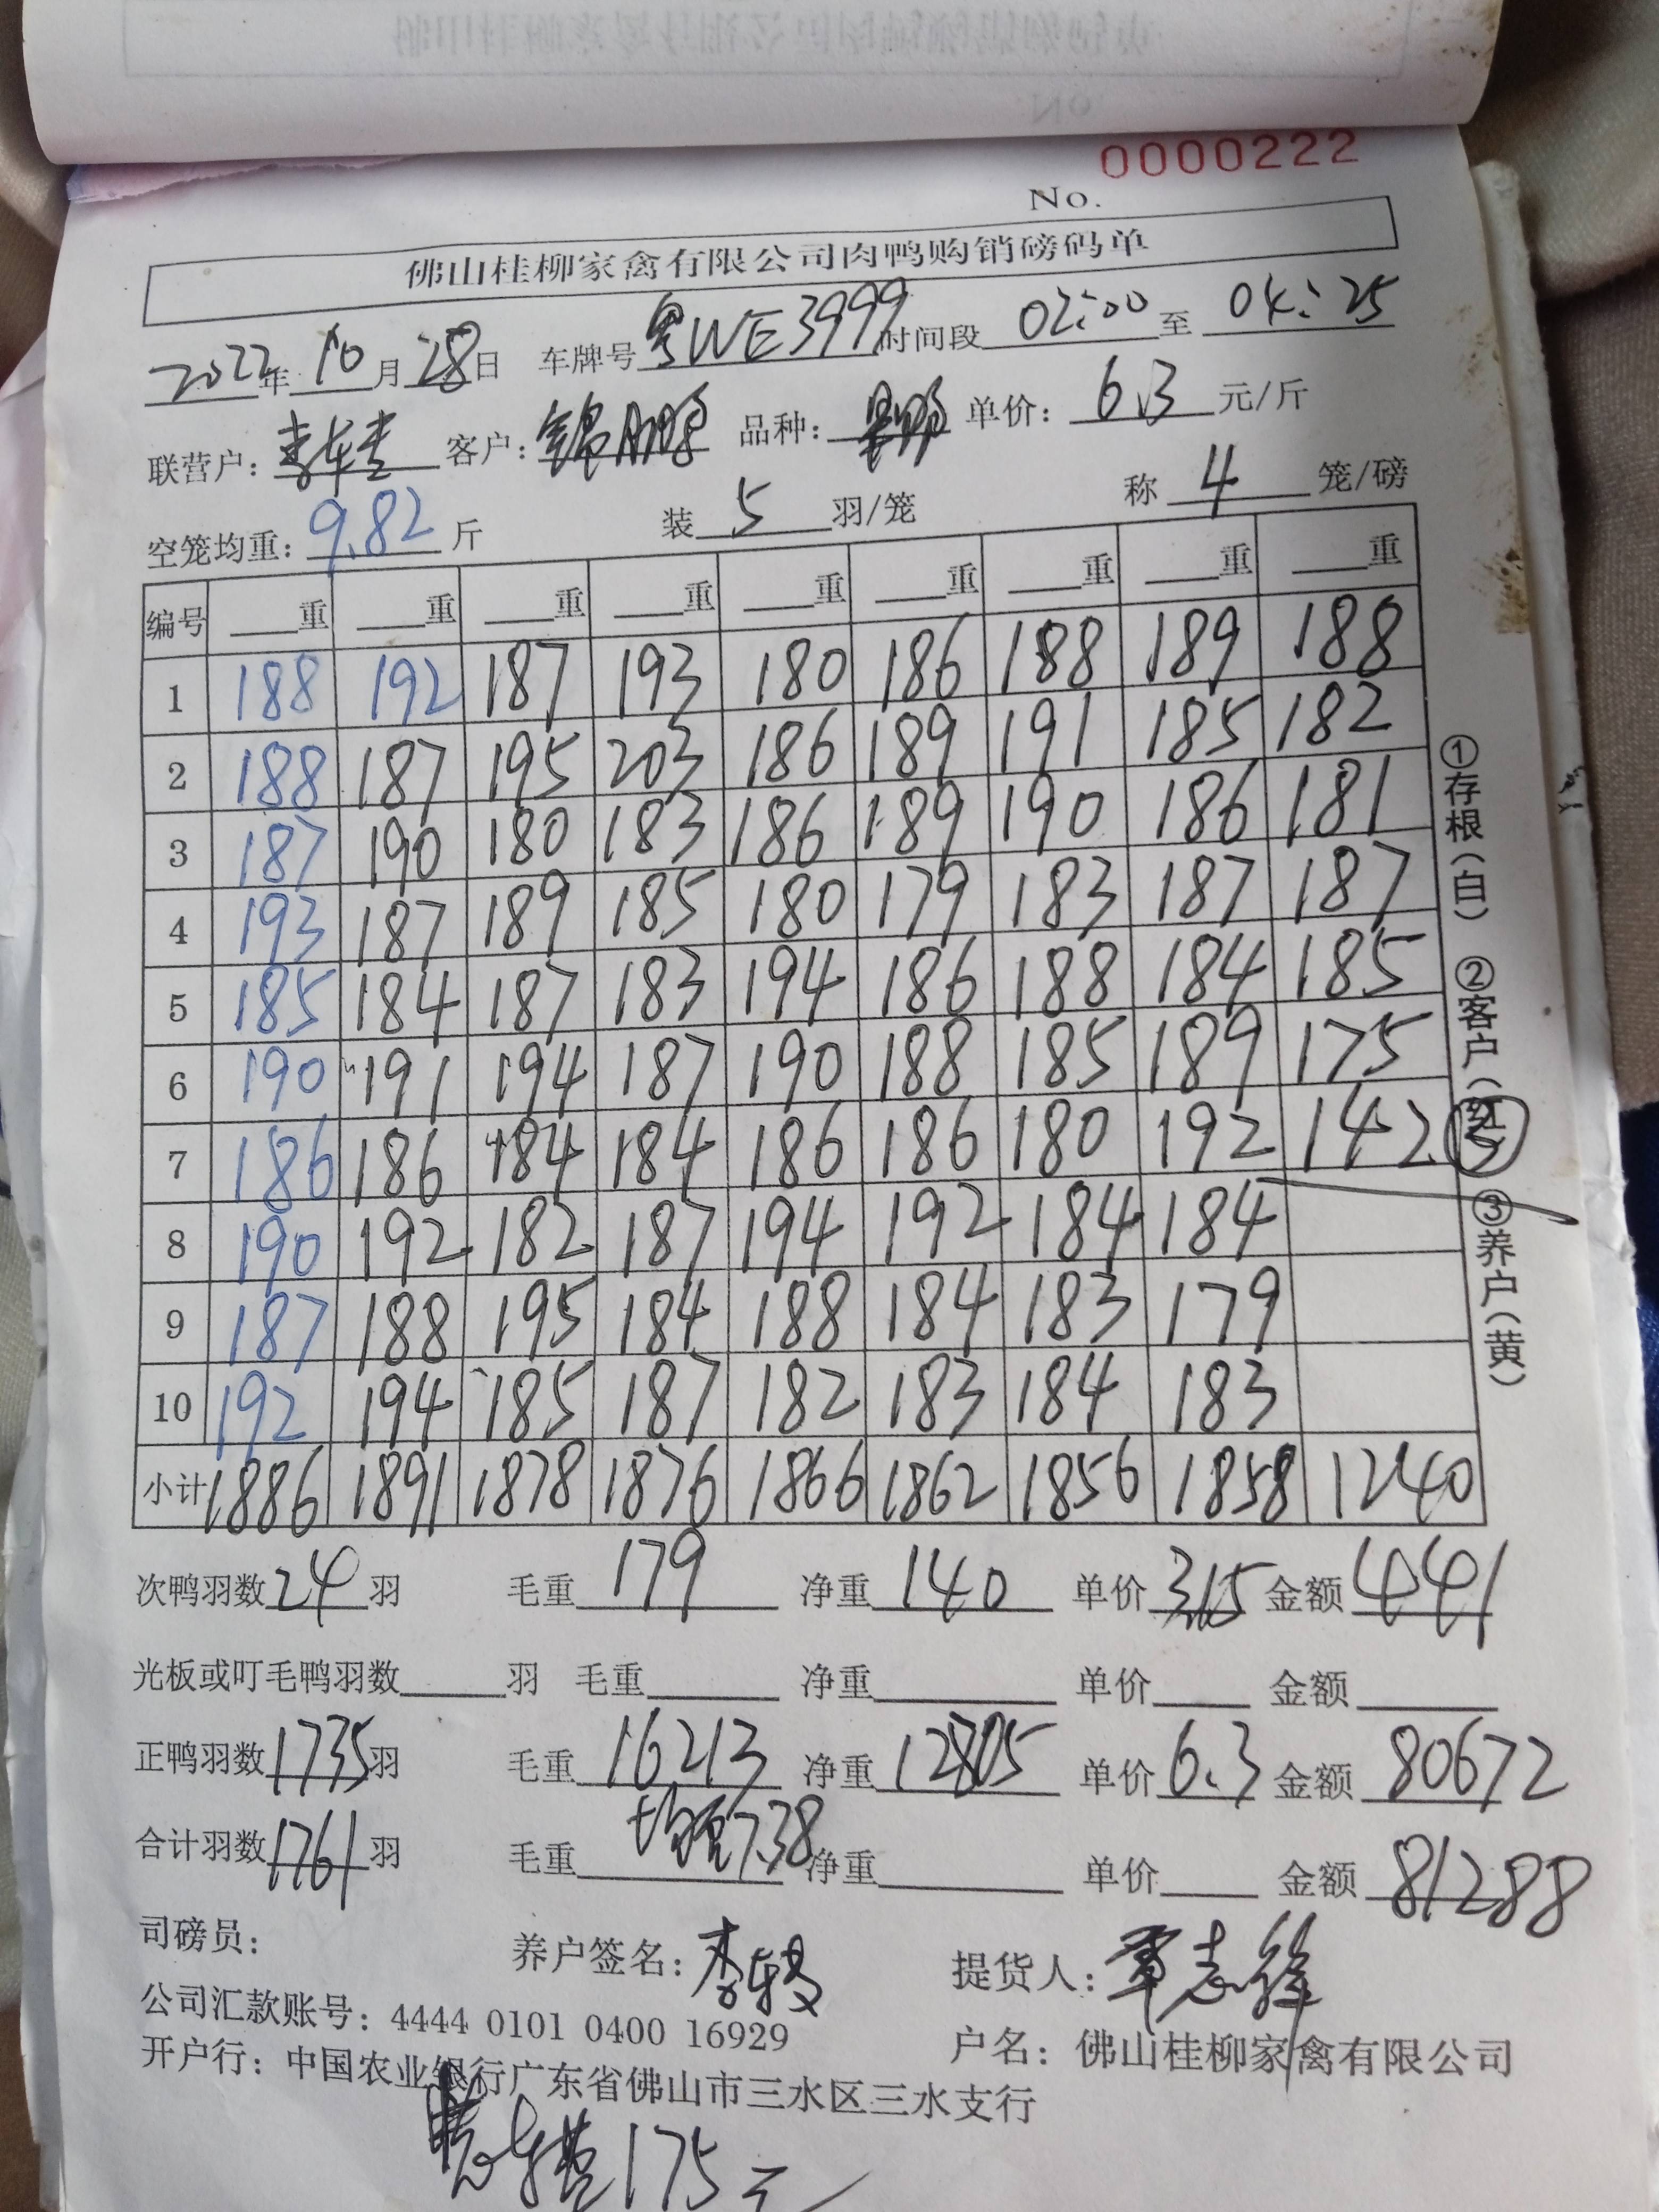 0000222
No.
佛山桂柳家禽有限公司肉鸭购销磅码单
2022年 10月 28日 车牌号 粤WE3999 时间段 02:00 至 04:25
联营户: 李 客户: 锦鹏 品种: 单价: 6.3 元/斤
空笼均重: 9.82 斤 装 5 羽/笼 称 4 笼/磅
编号 重 重 重 重 重 重 重 重 重
1 188 192 187 193 180 186 188 189 188
2 188 187 195 203 186 189 191 185 182
3 187 190 180 183 186 189 190 186 181
4 193 187 189 185 180 179 183 187 187
5 185 184 187 183 194 186 188 184 185
6 190 191 194 187 190 188 185 189 175
7 186 186 184 184 186 186 180 192 142 ③
8 190 192 182 187 194 192 184 184
9 187 188 195 184 188 184 183 179
10 192 194 185 187 182 183 184 183
小计 1886 1891 1878 1876 1866 1862 1856 1858 1240
次鸭羽数 24 羽 毛重 179 净重 140 单价 3.15 金额 441
光板或叮毛鸭羽数 羽 毛重 净重 单价 金额
正鸭羽数 1735 羽 毛重 16213 净重 12805 单价 6.3 金额 80672
合计羽数 1761 羽 毛重 均重7.38 净重 单价 金额 81288
司磅员: 养户签名: 李 提货人: 覃志锋
公司汇款账号: 4444 0101 0400 16929 户名: 佛山桂柳家禽有限公司
开户行: 中国农业银行广东省佛山市三水区三水支行
175元
①存根(白) ②客户(红) ③养户(黄)